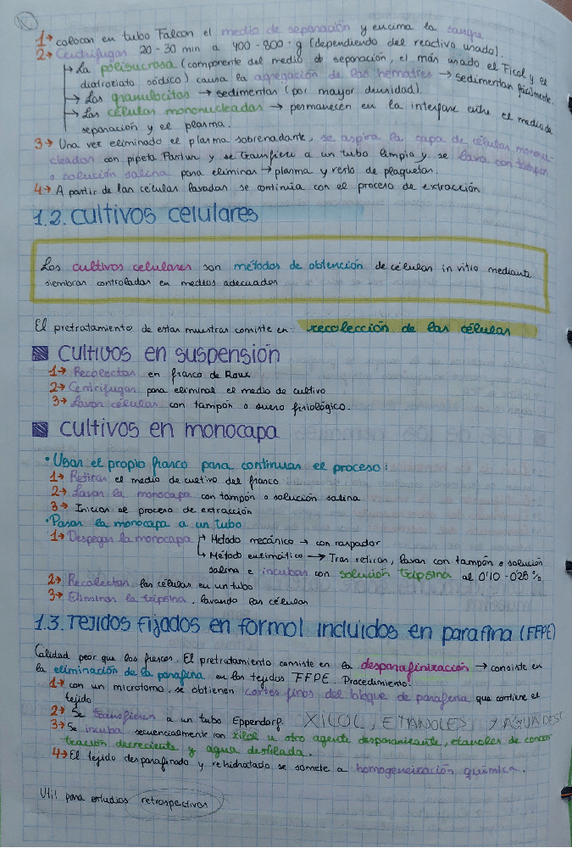 1→ colocan en tubo Falcon el medio de separación y encima la sangre
2→ Centrifugar 20-30 min a 400-800·g (dependiendo del reactivo usado).
↳ La polisucrosa (componente del medio de separación, el más usado el Ficol y el
diatrizoato sódico) causa la agregación de los hematíes → sedimentan fácilmente.
↳ Los granulocitos → sedimentan (por mayor densidad).
↳ Las células mononucleadas → permanecen en la interfase entre el medio de
separación y el plasma.
3→ Una vez eliminado el plasma sobrenadante, se aspira la capa de células mononu-
cleadas con pipeta Pasteur y se transfiere a un tubo limpio y se lava con tampón
o solución salina para eliminar → plasma y resto de plaquetas.
4→ A partir de las células lavadas se continúa con el proceso de extracción
1.2. cultivos celulares
Los cultivos celulares son métodos de obtención de células in vitro mediante
siembras controladas en medios adecuados
El pretratamiento de estas muestras consiste en recolección de las células
cultivos en suspensión
1→ Recolectar en frasco de Roux
2→ Centrifugar para eliminar el medio de cultivo
3→ Lavar células con tampón o suero fisiológico.
cultivos en monocapa
• Usar el propio frasco para continuar el proceso:
1→ Retirar el medio de cultivo del frasco
2→ Lavar la monocapa con tampón o solución salina
3→ Iniciar el proceso de extracción
• Pasar la monocapa a un tubo
1→ Despegar la monocapa → Método mecánico → con raspador
↳ Método enzimático → Tras retirar, lavar con tampón o solución
salina e incubar con solución tripsina al 0'10-0'25%
2→ Recolectar las células en un tubo
3→ Eliminar la tripsina, lavando las células
1.3. Tejidos fijados en formol incluidos en parafina (FFPE)
Calidad peor que los frescos. El pretratamiento consiste en la desparafinización → consiste en
la eliminación de la parafina en los tejidos FFPE. Procedimiento:
1→ con un microtomo, se obtienen cortes finos del bloque de parafina que contiene el
tejido
2→ Se transfieren a un tubo Eppendorf. XILOL, ETANOLES Y AGUA DEST
3→ Se incuba secuencialmente con xilol u otro agente desparafinante, etanoles de concen-
tración decreciente y agua destilada.
4→ El tejido desparafinado y rehidratado se somete a homogeneización química.
Util para estudios retrospectivos